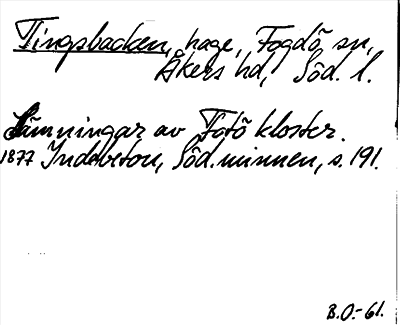 Tingsbacken, hage, Fogdö sn,
Åkers hd, Söd. l.
Lämningar av Fogdö kloster.
1877 Indebetou, Söd. minnen, s. 191.
B.O.-61.